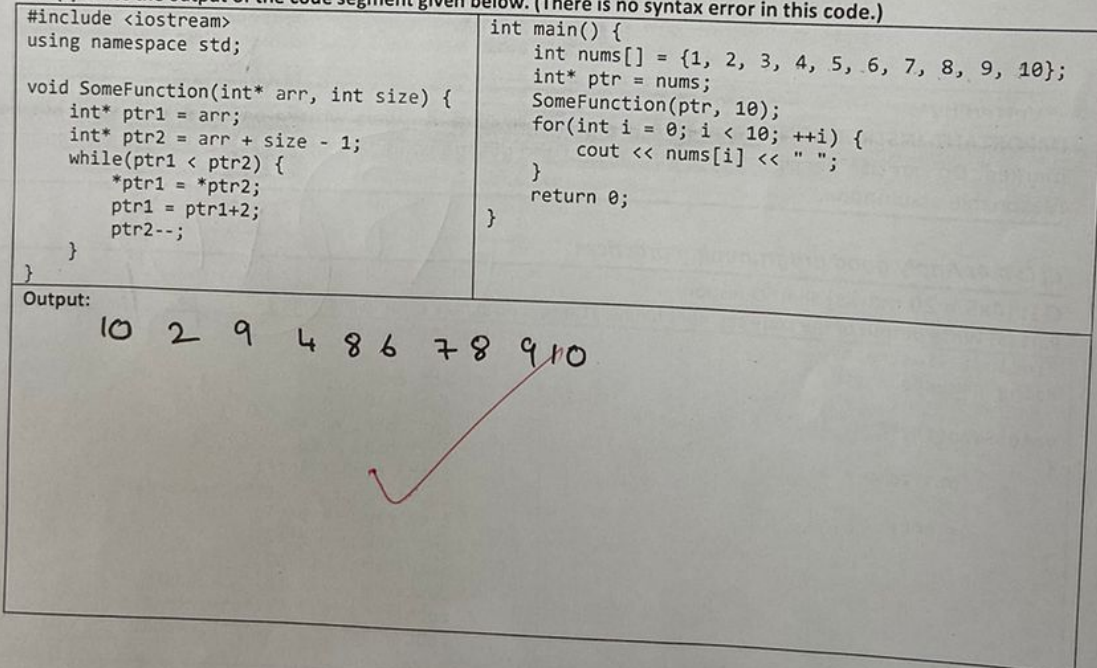 the output of the code segment given below. (There is no syntax error in this code.)
#include <iostream>
using namespace std;

void SomeFunction(int* arr, int size) {
    int* ptr1 = arr;
    int* ptr2 = arr + size - 1;
    while(ptr1 < ptr2) {
        *ptr1 = *ptr2;
        ptr1 = ptr1+2;
        ptr2--;
    }
}
int main() {
    int nums[] = {1, 2, 3, 4, 5, 6, 7, 8, 9, 10};
    int* ptr = nums;
    SomeFunction(ptr, 10);
    for(int i = 0; i < 10; ++i) {
        cout << nums[i] << " ";
    }
    return 0;
}
Output:
10 2 9 4 8 6 7 8 9 10